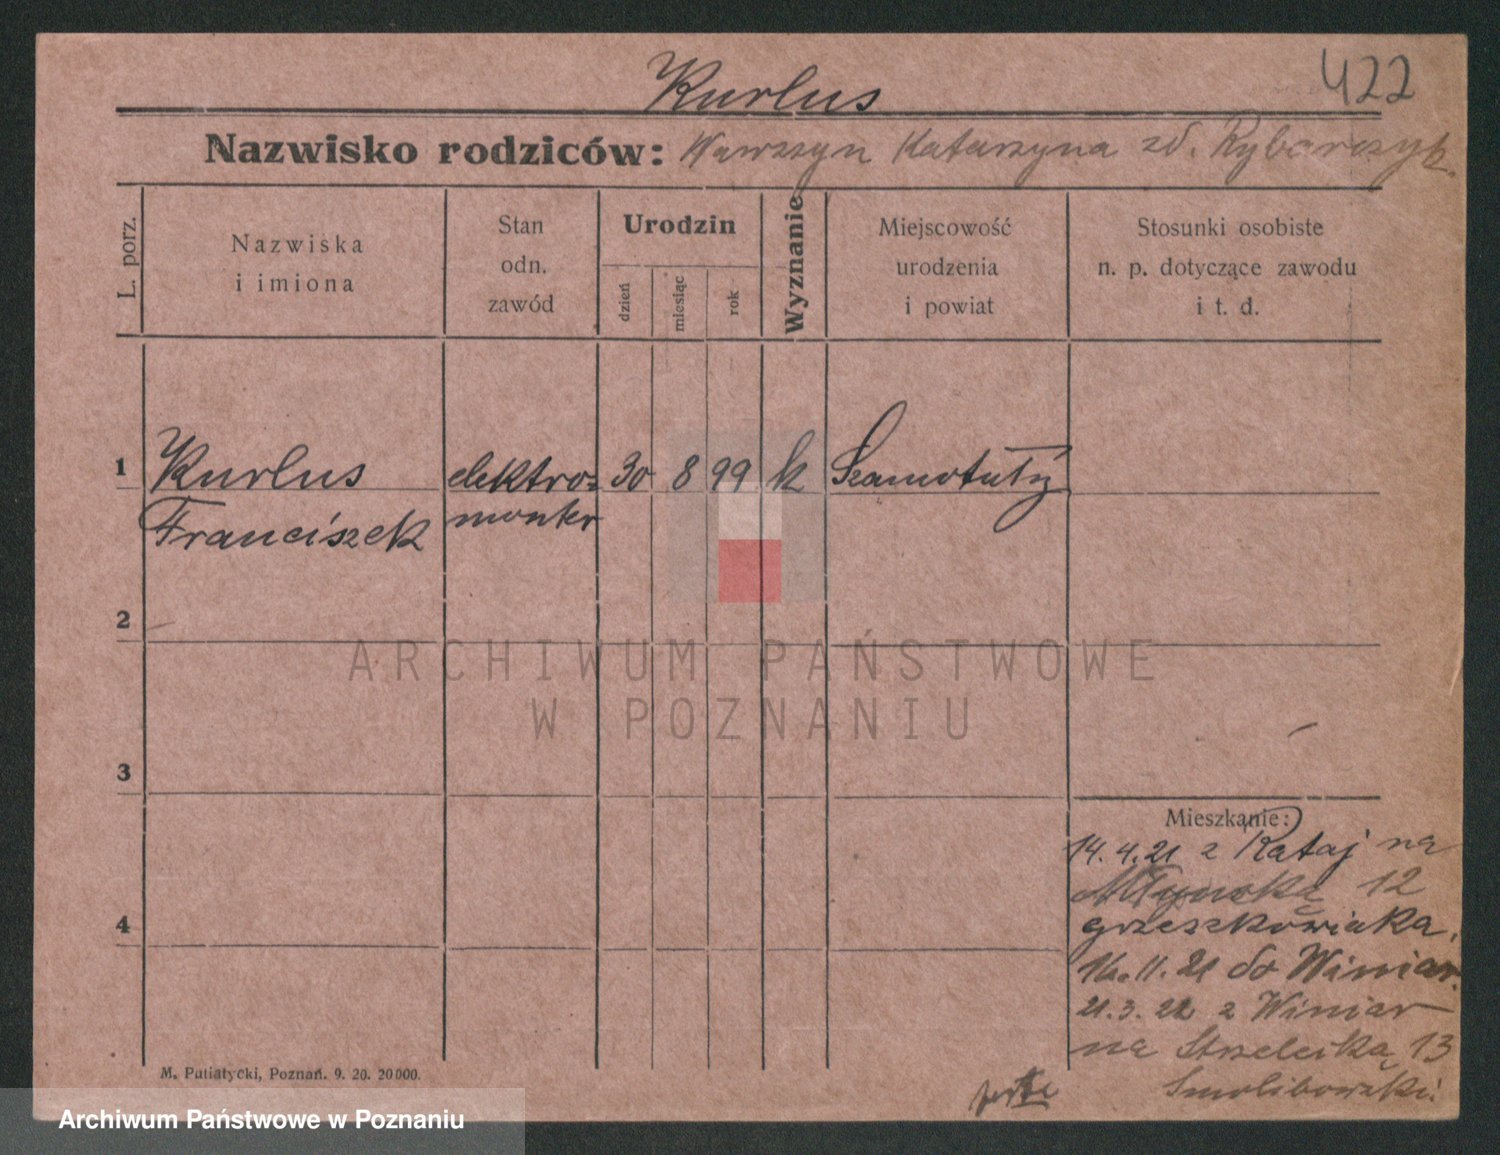 Kurlus
422
Nazwisko rodziców: Wawrzyn Katarzyna zd. Rybarczyk.
L. porz.
Nazwiska
i imiona
Stan
odn.
zawód
Urodzin
dzień
miesiąc
rok
Wyznanie
Miejscowość
urodzenia
i powiat
Stosunki osobiste
n. p. dotyczące zawodu
i t. d.
1 Kurlus elektro= 30 8 99 k Szamotuły
Franciszek monter
2
ARCHIWUM PAŃSTWOWE
W POZNANIU
3
Mieszkanie:
14.4.21 z Rataj na
Młyńską 12
4
Grzeszkowiaka.
16.11.21 do Winiar.
21.3.22 z Winiar
na Strzelecką 13
Smolibowski
M. Putiatycki, Poznań. 9. 20. 20000.
Archiwum Państwowe w Poznaniu